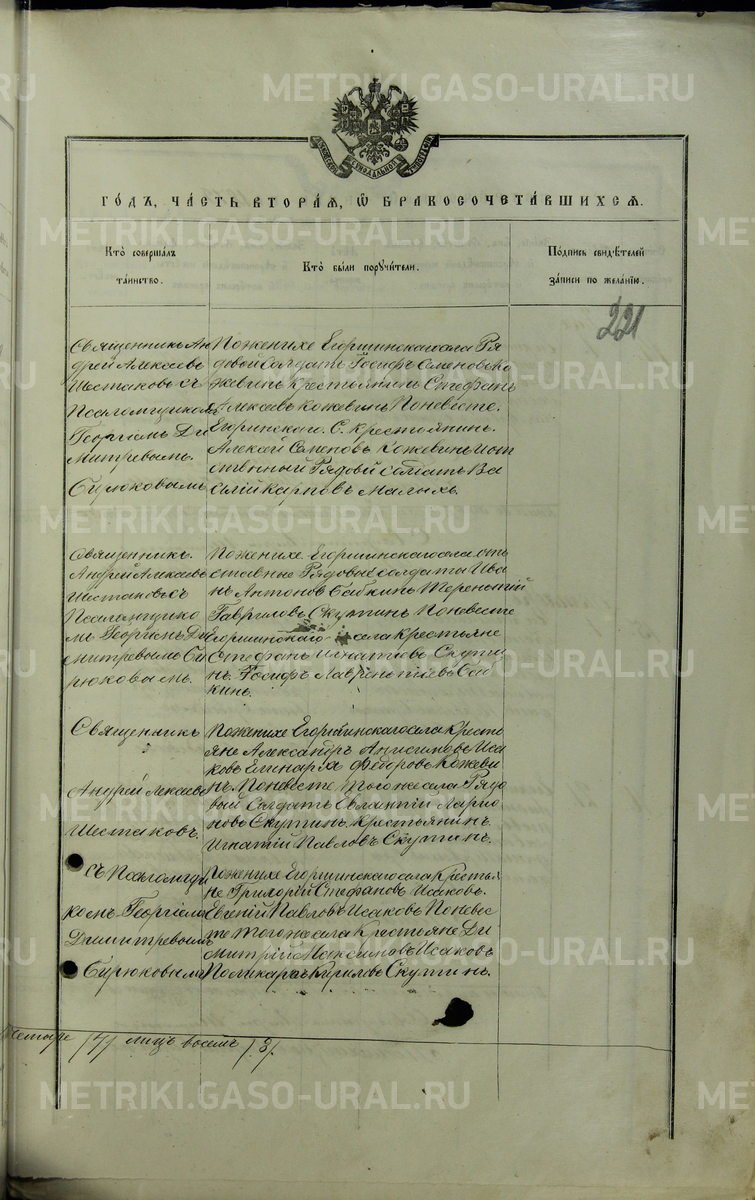 METRIKI.GASO-URAL.RU
ГОДЪ, ЧАСТЬ ВТОРАЯ, Ѡ БРАКОСОЧЕТАВШИХСЯ.
Кто̀ совершалъ таинство.
Кто̀ были поручители.
Подпись свидѣтелей записи по желанїю.
221
Священникъ Ан
дрей Алексѣевъ
Шестаковъ съ
Псаломщикомъ
Георгiемъ Ди
митревымъ
Бирюковымъ
По женихѣ Егоршинскаго села Ря
довой Солдатъ Iосифъ Семеновъ Ко
жевинъ крестьянинъ Стефанъ
Алексѣевъ Кожевинъ По невѣсте.
Егоринскаго. С. крестьянинъ.
Алексѣй Семеновъ Кожевинъ и от
ставный Рядовой солдатъ Ва
силiй Карповъ Малыхъ.
Священникъ.
Андрей Алексѣевъ
Шестаковъ съ
Псаломщико
мъ Георгiемъ Ди
митревымъ Би
рюковымъ.
По женихе Егоршинскаго села от
ставные Рядовые солдаты Ива
нъ Антонов Бабкинъ Терентiй
Гавриловъ Скутинъ По невесте
Егоршинскаго села крестьяне
Стефанъ Игнатiевъ Скути
нъ. Iосифъ Лаврентiевъ Баб
кинъ.
Священникъ
Андрей Алексѣевъ
Шестаковъ.
По женихе Егоршинскаго села кресть
яне Александръ Анисимовъ Иса
ковъ Федоровъ Кожеви
нъ. По невесте, того же села Рядо
вый Солдатъ Евлантiй Ларио
новъ Скутинъ. крестьянинъ
Игнатiй Павловъ Скутинъ.
съ Псаломщи
комъ Георгiемъ
Димитревымъ
Бирюковымъ
По женихе Егоршинскаго села кресть
не Григорiй Стефановъ Исаковъ.
Евгенiй Павловъ Исаковъ По невес
те того же села крестьяне Ди
митрiй Максимовъ Исаковъ
Поликарпъ Кириловъ Скутинъ.
четыре /4/ лицъ восемь /8/.